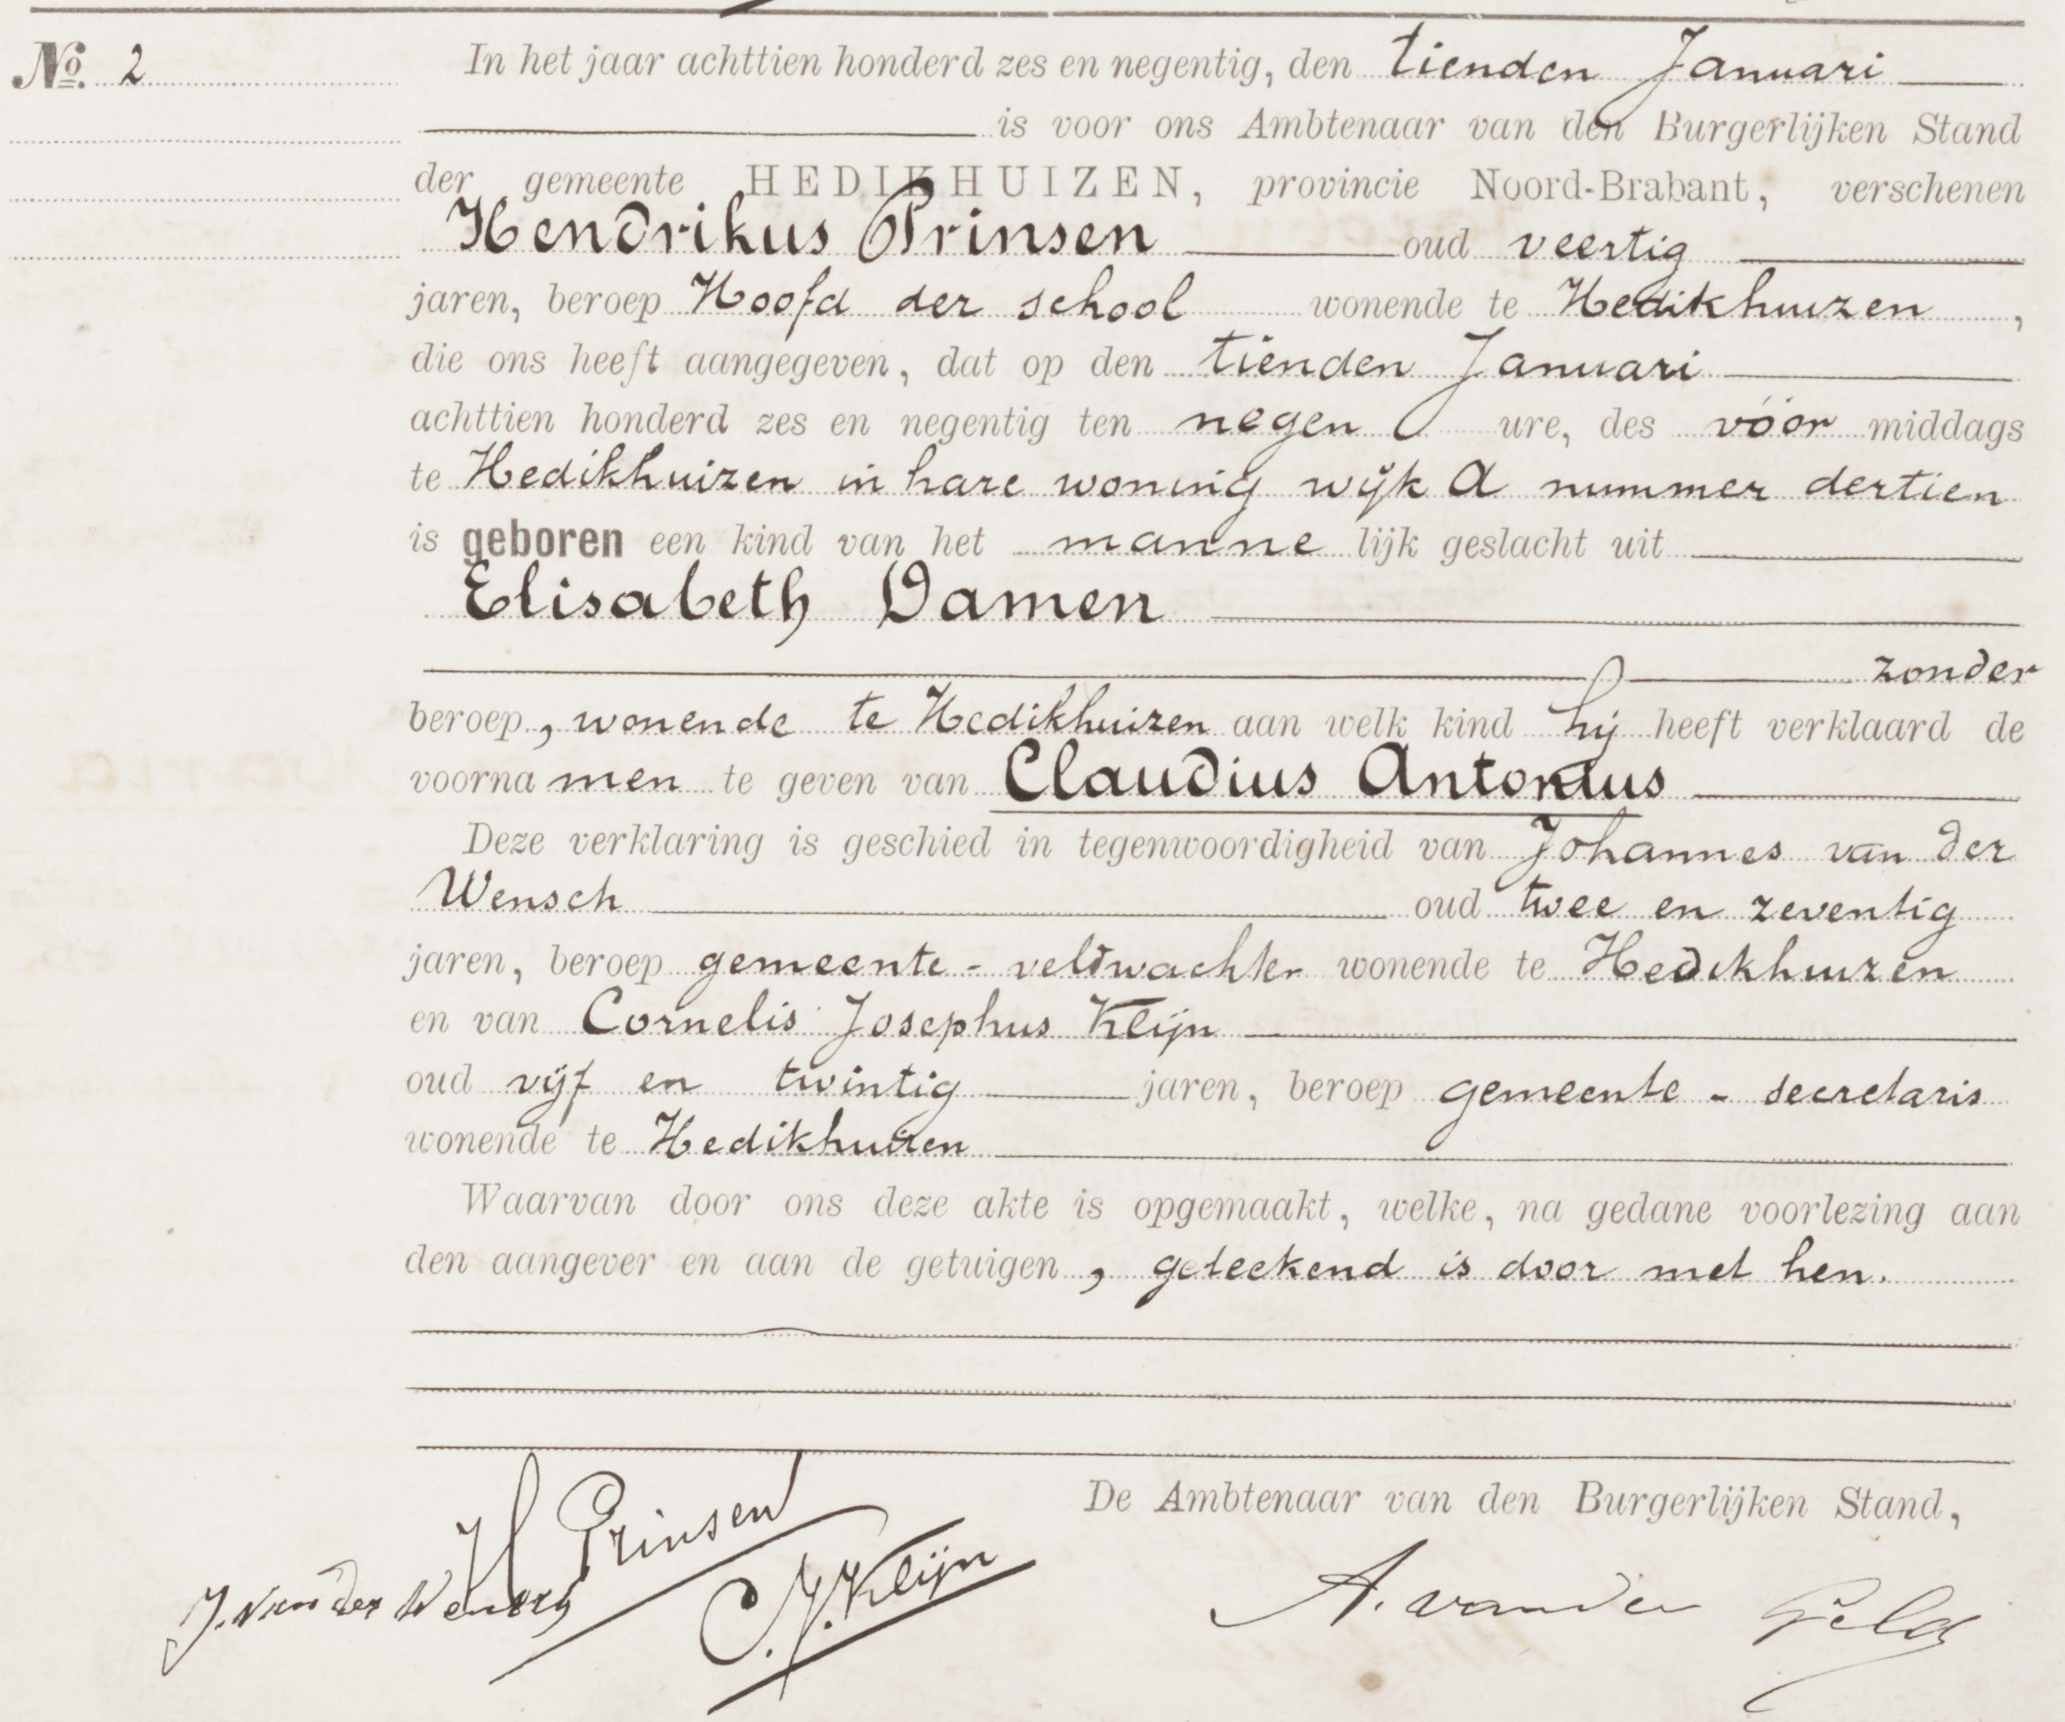 No. 2
In het jaar achttien honderd zes en negentig, den tienden Januari
is voor ons Ambtenaar van den Burgerlijken Stand
der gemeente HEDIKHUIZEN, provincie Noord-Brabant, verschenen
Hendrikus Prinsen oud veertig
jaren, beroep Hoofd der school wonende te Hedikhuizen,
die ons heeft aangegeven, dat op den tienden Januari
achttien honderd zes en negentig ten negen ure, des vóór middags
te Hedikhuizen in hare woning wijk A nummer dertien
is geboren een kind van het manne lijk geslacht uit
Elisabeth Damen
zonder
beroep, wonende te Hedikhuizen aan welk kind hij heeft verklaard de
voorna men te geven van Claudius Antonius
Deze verklaring is geschied in tegenwoordigheid van Johannes van der
Wensch oud twee en zeventig
jaren, beroep gemeente-veldwachter wonende te Hedikhuizen
en van Cornelis Josephus Klijn
oud vijf en twintig jaren, beroep gemeente-secretaris
wonende te Hedikhuizen
Waarvan door ons deze akte is opgemaakt, welke, na gedane voorlezing aan
den aangever en aan de getuigen, geteekend is door met hen.
De Ambtenaar van den Burgerlijken Stand,
H Prinsen
J. van der Wensch
C. J. Klijn
A. van der Geld